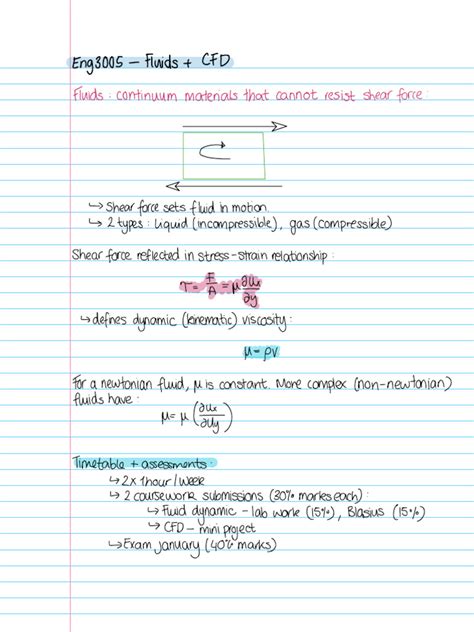 Eng3005 – Fluids + CFD
Fluids : continuum materials that cannot resist shear force :
↳ Shear force sets fluid in motion
↳ 2 types : liquid (incompressible), gas (compressible)
Shear force reflected in stress-strain relationship :
τ = F/A = μ ∂ux/∂y
↳ defines dynamic (kinematic) viscosity :
μ = ρν
For a newtonian fluid, μ is constant. More complex (non-newtonian)
fluids have :
μ = μ (∂ux/∂uy)
Timetable + assessments :
↳ 2x 1hour / week
↳ 2 coursework submissions (30% marks each) :
↳ Fluid dynamic – lab work (15%), Blasius (15%)
↳ CFD – mini project
↳ Exam january (40% marks)